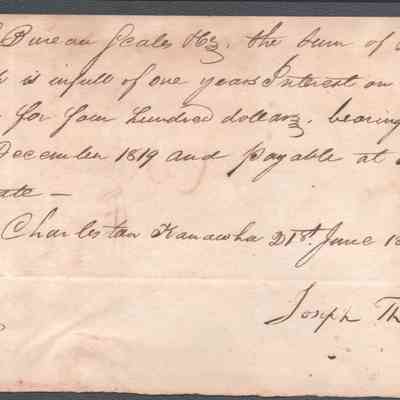 Bureau Scales the sum of
is infull of one years Interest on
for four hundred dollars, bearing
December 1819 and payable at
ate —
Charleston Kanawha 21st. June 18
Joseph Th